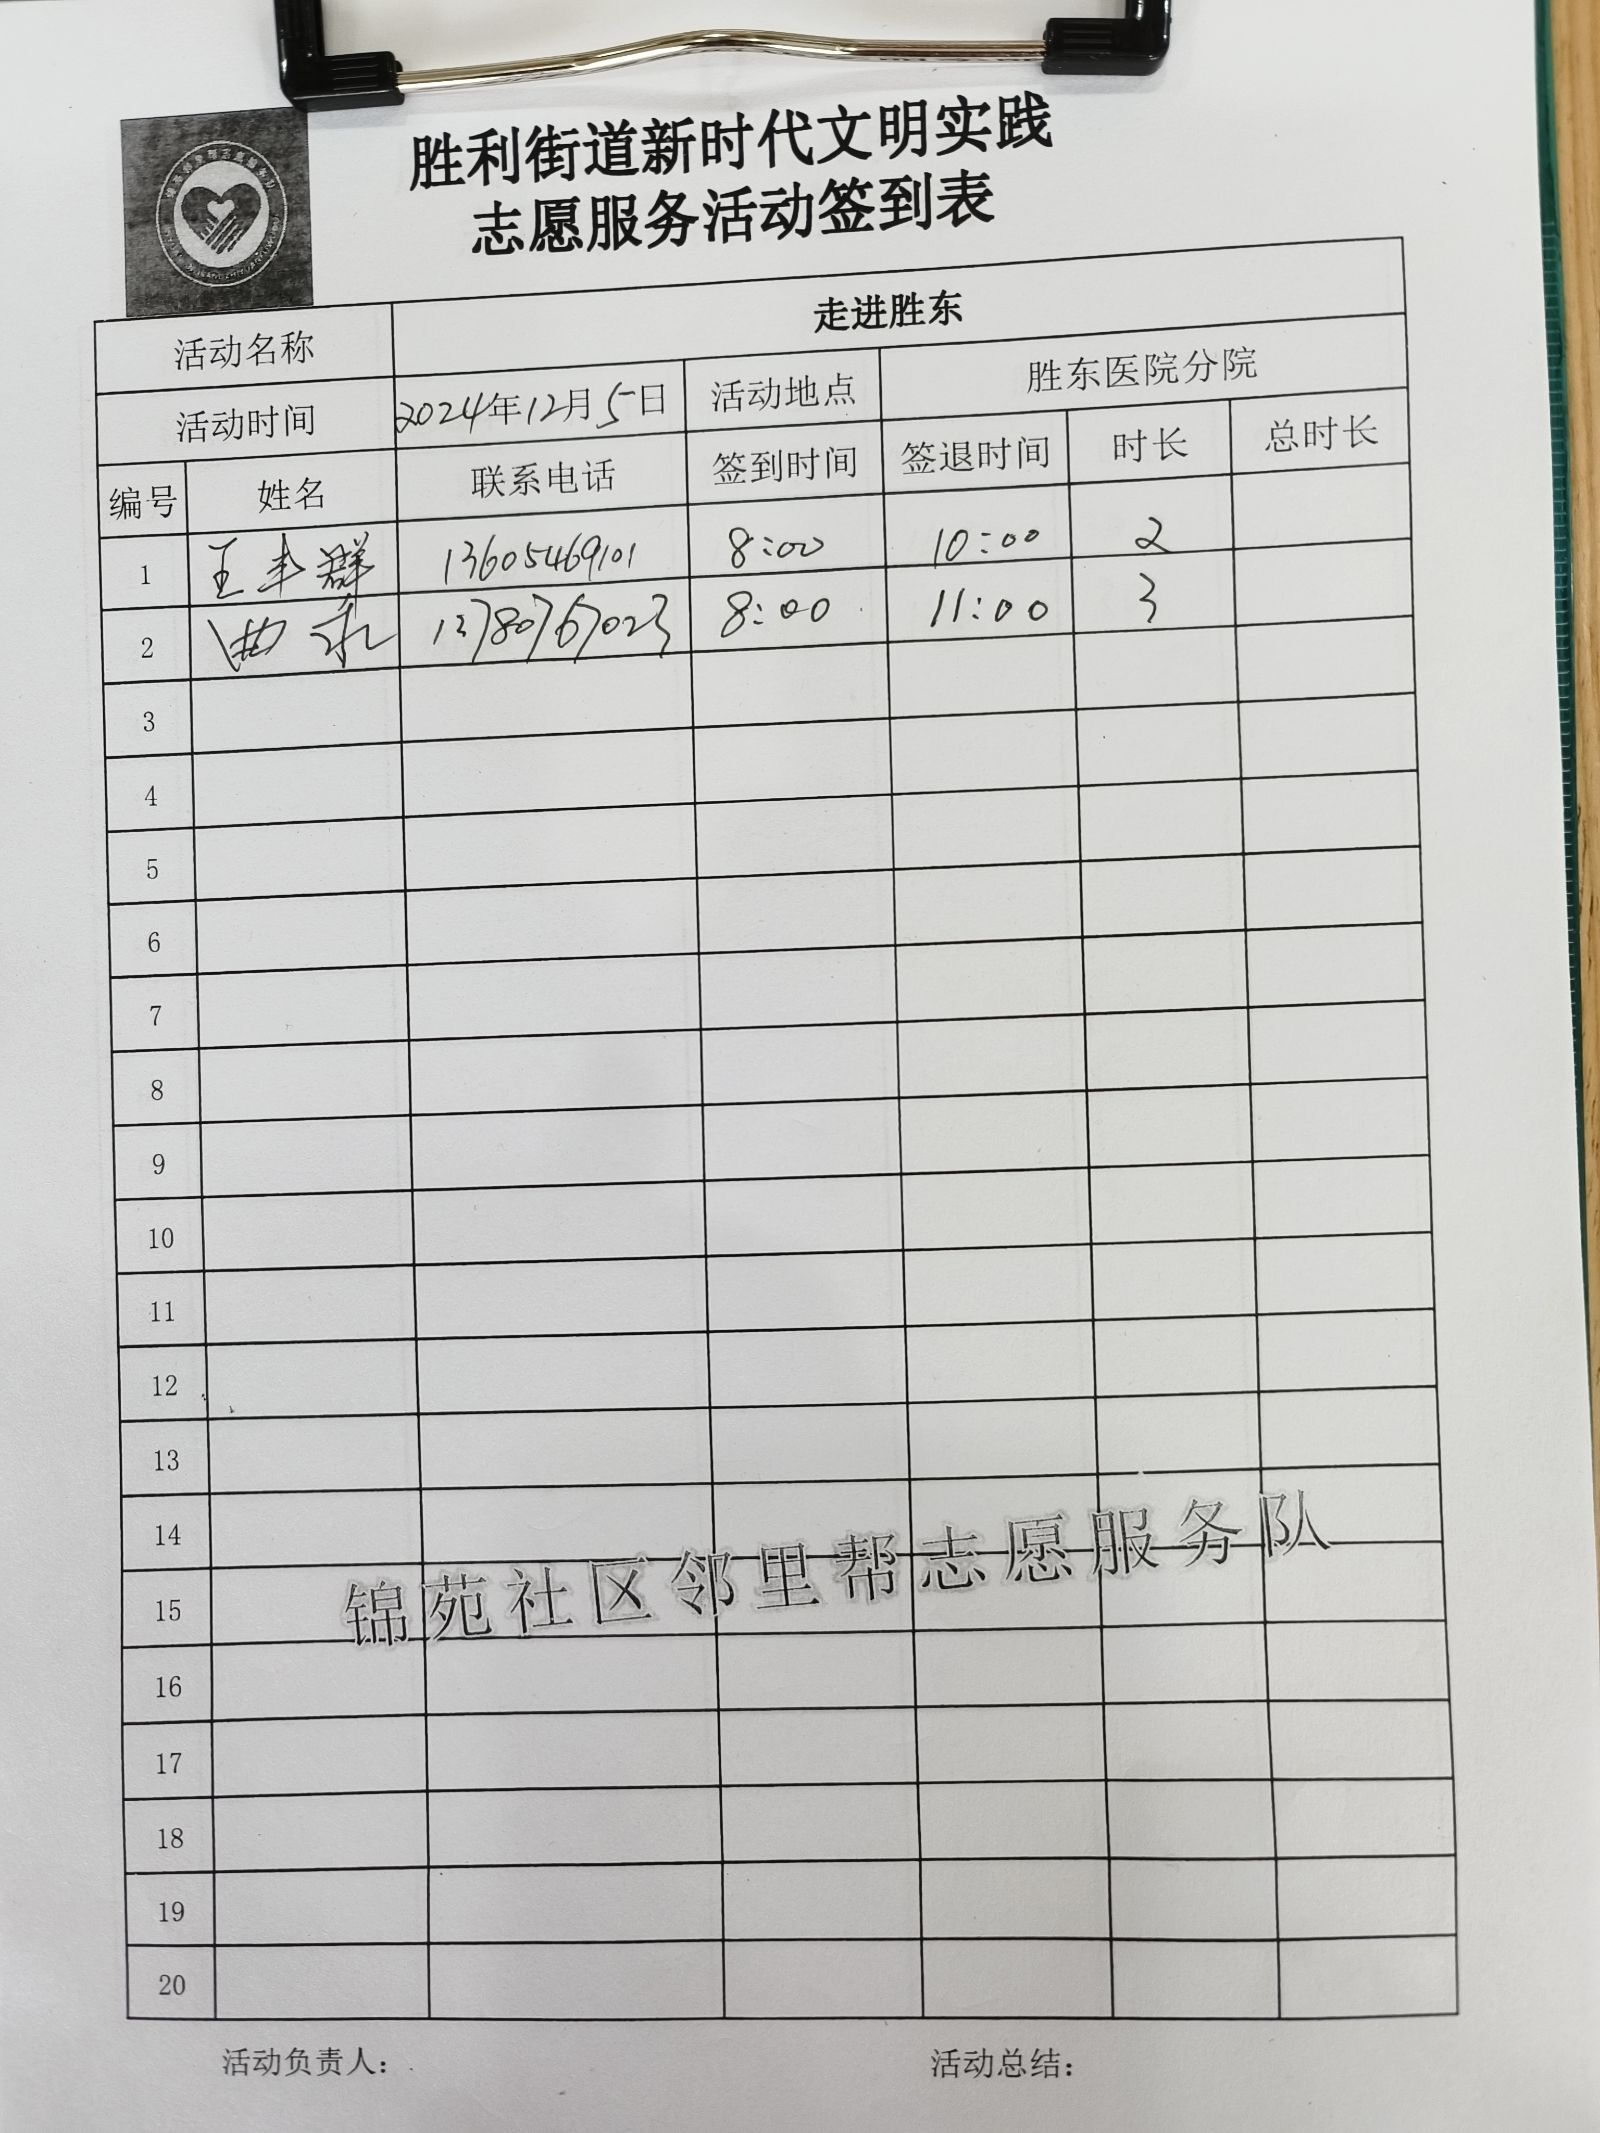 胜利街道新时代文明实践
志愿服务活动签到表
活动名称 走进胜东
活动时间 2024年12月5日 活动地点 胜东医院分院
编号 姓名 联系电话 签到时间 签退时间 时长 总时长
1 王丰群 13605469101 8:00 10:00 2
2 曲永 13780767023 8:00 11:00 3
3
4
5
6
7
8
9
10
11
12
13
14
锦苑社区邻里帮志愿服务队
15
16
17
18
19
20
活动负责人： 活动总结：